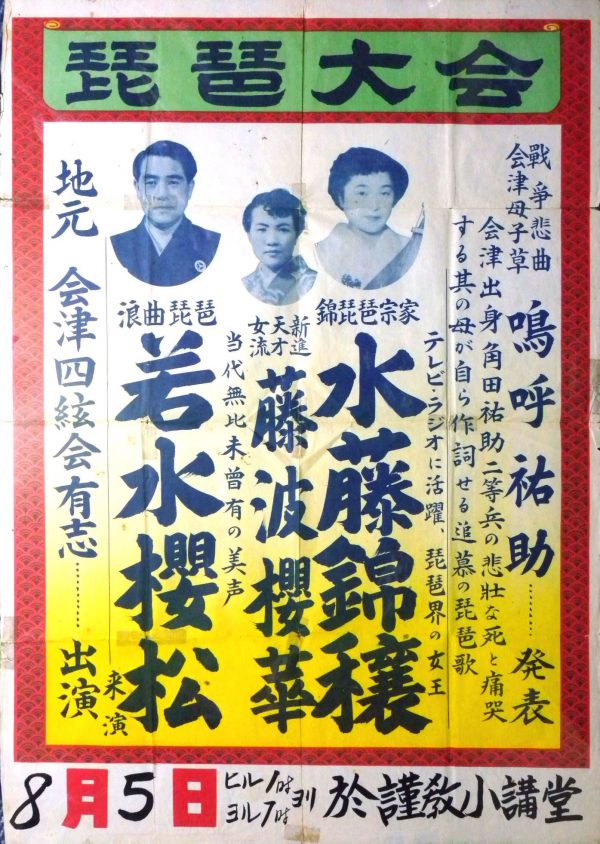 琵琶大会
戰爭悲曲
会津母子草
嗚呼祐助………発表
会津出身角田祐助二等兵の悲壮な死と痛哭
する其の母が自ら作詞せる追慕の琵琶歌
テレビ・ラジオに活躍、琵琶界の女王
錦琵琶宗家
水藤錦穣
新進
天才
女流
藤波櫻華
当代無比未曾有の美声
浪曲琵琶
若水櫻松
来演
地元 会津四絃会有志………出演
8月5日 ヒル1時 ヨル7時 ヨリ 於謹教小講堂